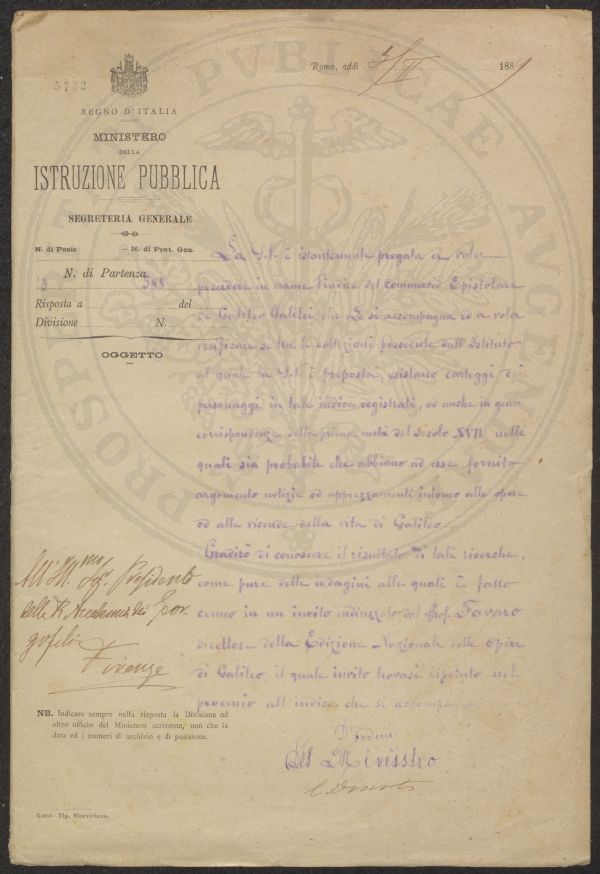 PROSPERITATI PVBLICAE AVGENDAE
5732
Roma, addì 5/II 1889
REGNO D'ITALIA
MINISTERO
DELLA
ISTRUZIONE PUBBLICA
SEGRETERIA GENERALE
N. di Posiz. — N. di Prot. Gen.
N. di Partenza 588
Risposta a del
Divisione N.
OGGETTO
La S.V. è istantemente pregata a voler
prendere in esame l'indice del Commercio Epistolare
di Galileo Galilei che Le si accompagna ed a voler
verificare se tra le collezioni possedute dall'Istituto
al quale la S.V. è preposta, esistano carteggi dei
personaggi in tale indice registrati, ed anche in genere
corrispondenze della prima metà del secolo XVII nelle
quali sia probabile che abbiano ad esse fornito
argomento notizie ed apprezzamenti intorno alle opere
ed alle vicende della vita di Galileo.
Gradirò di conoscere il risultato di tali ricerche,
come pure delle indagini alle quali è fatto
cenno in un invito indirizzato dal Prof. Favaro
direttore della Edizione Nazionale delle Opere
di Galileo, il quale invito trovasi ripetuto nel
proemio all'indice che si accompagna.
All'Ill.mo Sig. Presidente
della R. Accademia dei Geor-
gofili
Firenze
NB. Indicare sempre nella risposta la Divisione od
altro ufficio del Ministero scrivente, non che la
data ed i numeri di archivio e di posizione.
D'ordine
Il Ministro
Roma Tip. Elzeviriana.